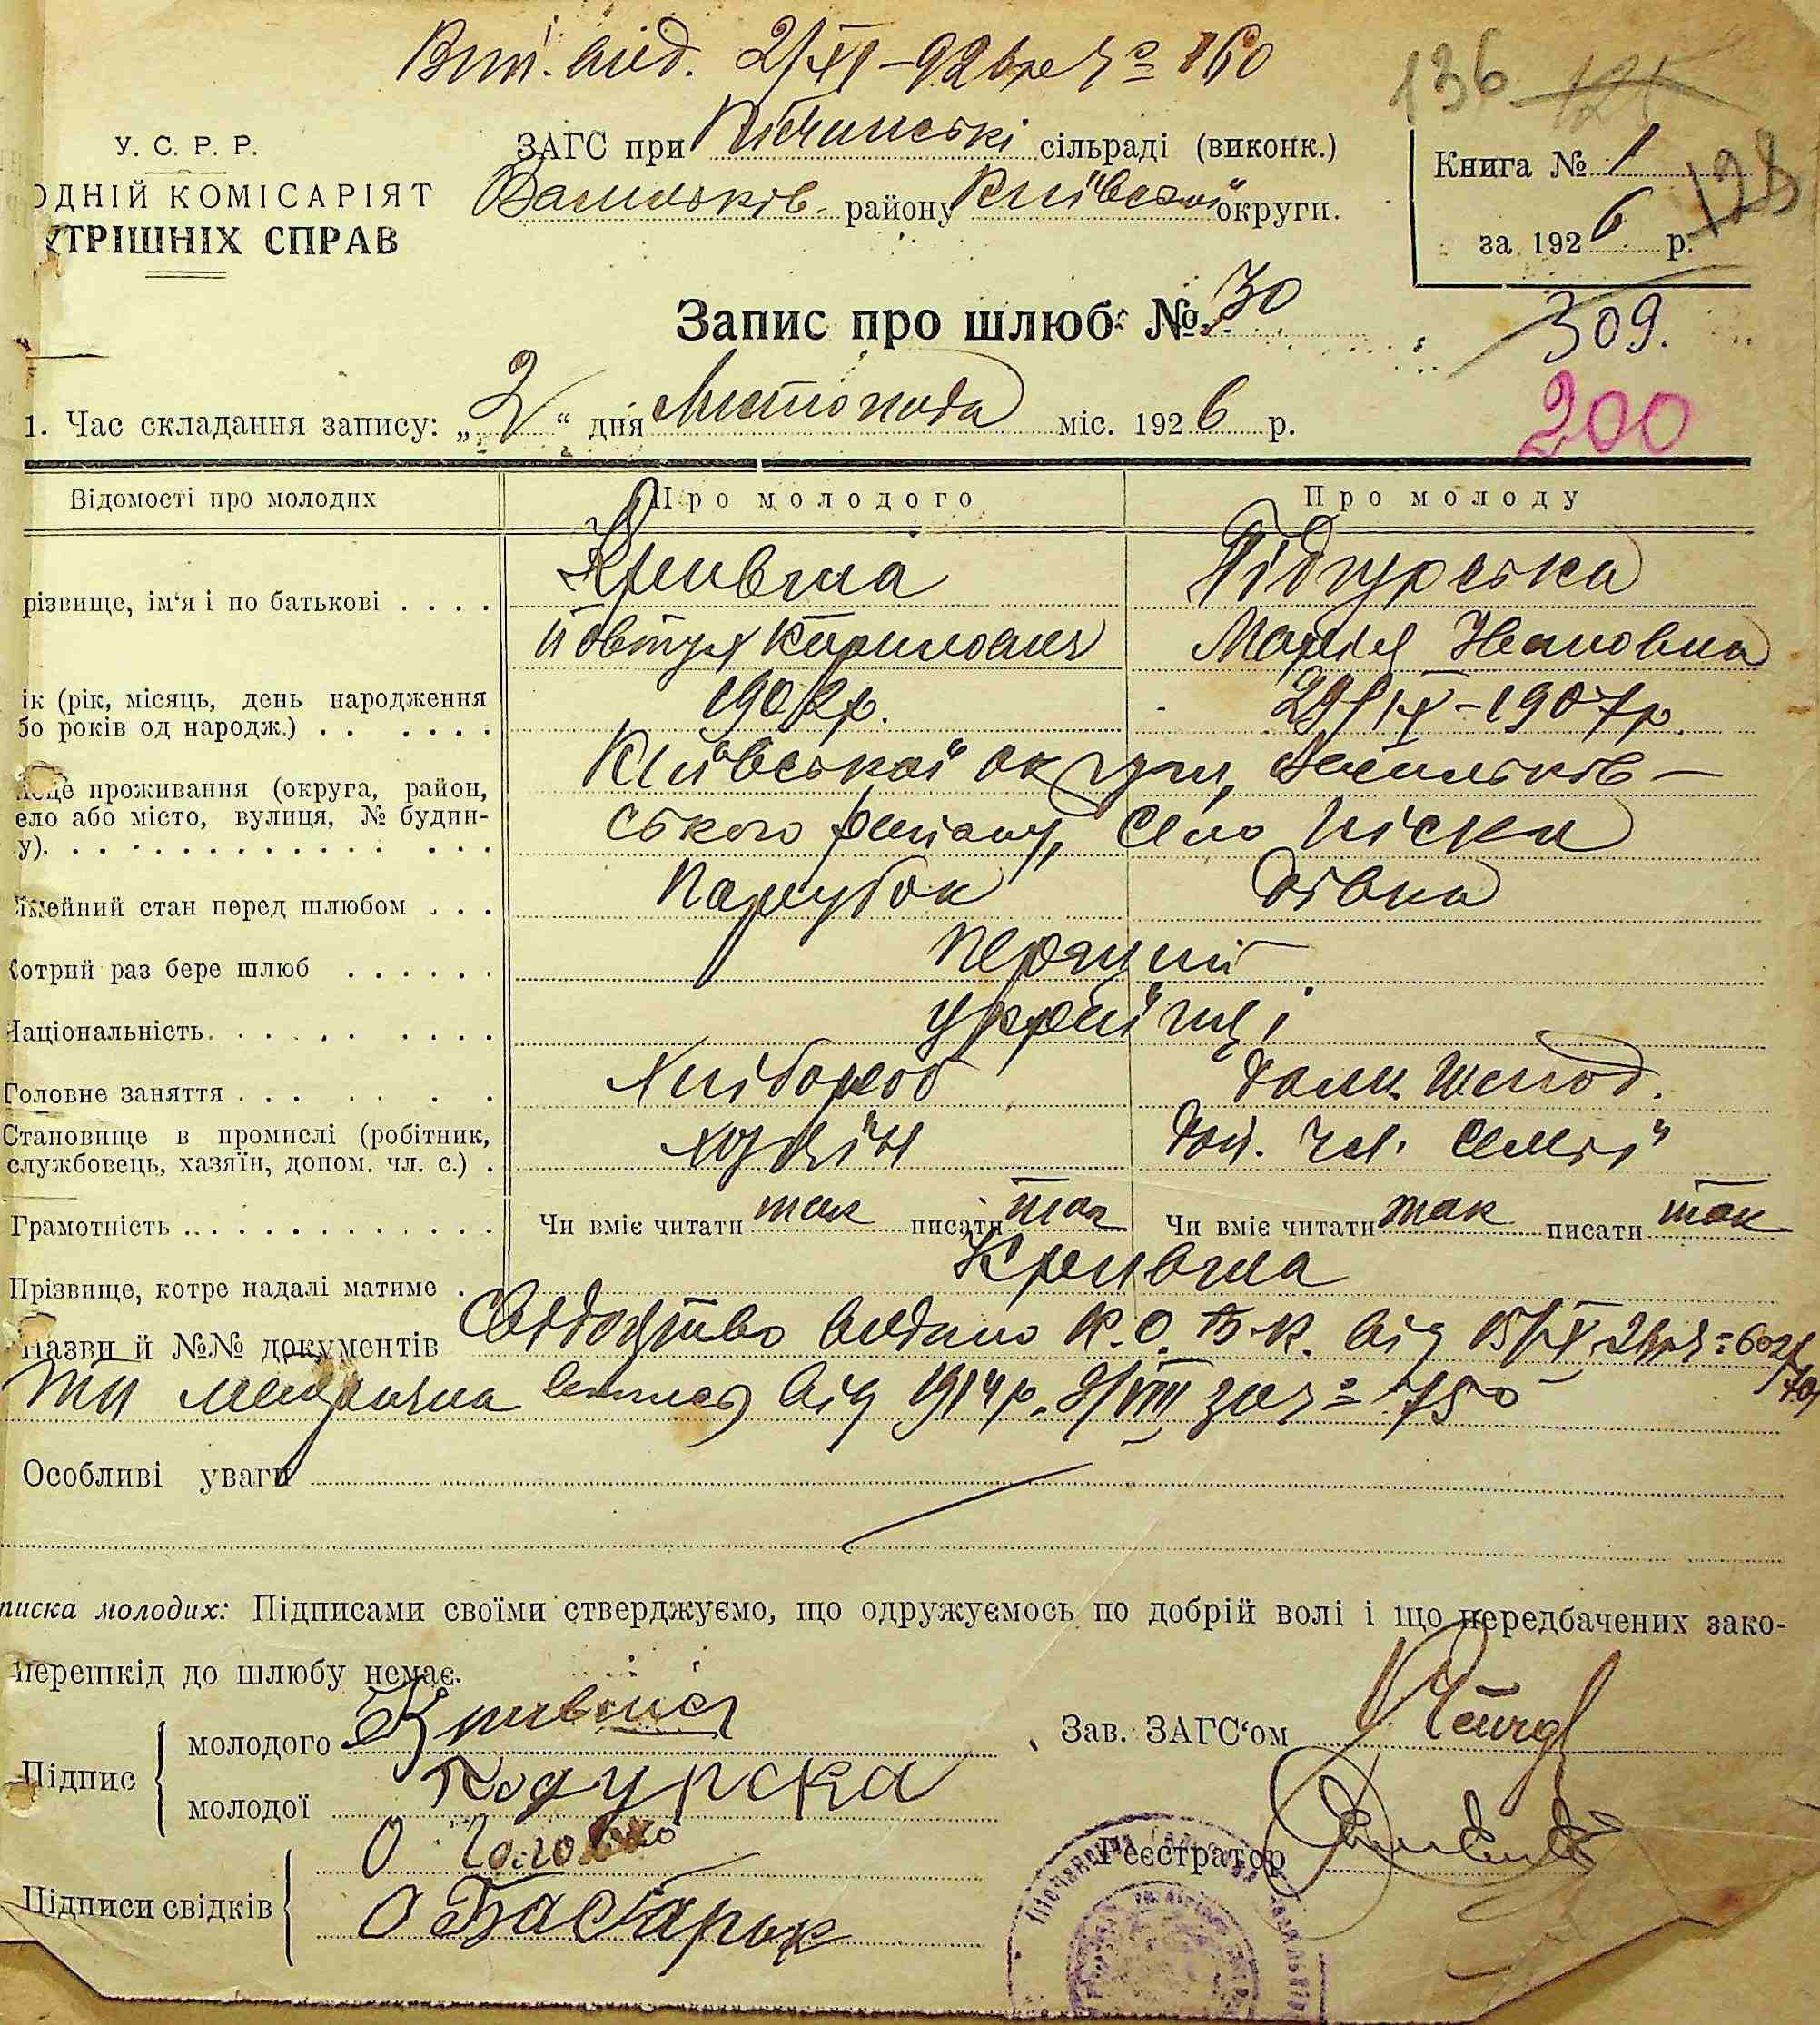 Вит. вид. 2/XI-926р № 160
136 121
У. С. Р. Р.
ЗАГС при Пісчанські сільраді (виконк.)
Книга № 1
128
ОДНІЙ КОМІСАРІЯТ
Васильків. району Київської округи.
УТРІШНІХ СПРАВ
за 1926 р.
Запис про шлюб № 30
309.
1. Час складання запису: „2“ дня Листопада міс. 1926 р.
200
Відомості про молодих Про молодого Про молоду
різвище, ім‘я і по батькові . . . . Кривша Підгурська
Йовтух Карпилович Марія Івановна
ік (рік, місяць, день народження 1902р. 29/IX-1907р.
бо років од народж.) . . . . . .
Київської округи, Васильків-
ісце проживання (округа, район,
ело або місто, вулиця, № будин- ського району, село Піски
у). . . . . . . . . . . . . . . .
імейний стан перед шлюбом . . . Парубок Дівка
Котрий раз бере шлюб . . . . . . перший
Національність. . . . . . . . . . українці
Головне заняття . . . . . . . Хлібороб Дом. господ.
Становище в промислі (робітник,
службовець, хазяїн, допом. чл. с.) . хазяїн Доп. чл. семьї
Грамотність . . . . . . . . . . . . . Чи вміє читати так писати так Чи вміє читати так писати так
Прізвище, котре надалі матиме . Кривша
Назви й №№ документів Свідоцтво видано К.О.В.К. від 15/IX
та метрична випись від 1914р. 8/VIII за № 750
Особливі уваги
писка молодих: Підписами своїми стверджуємо, що одружуємось по добрій волі і що передбачених зако-
перешкід до шлюбу немає.
Підпис
молодого Кривша
Зав. ЗАГС‘ом
молодої Подурска
Підписи свідків
О Головко
Реєстратор
О Бастарик